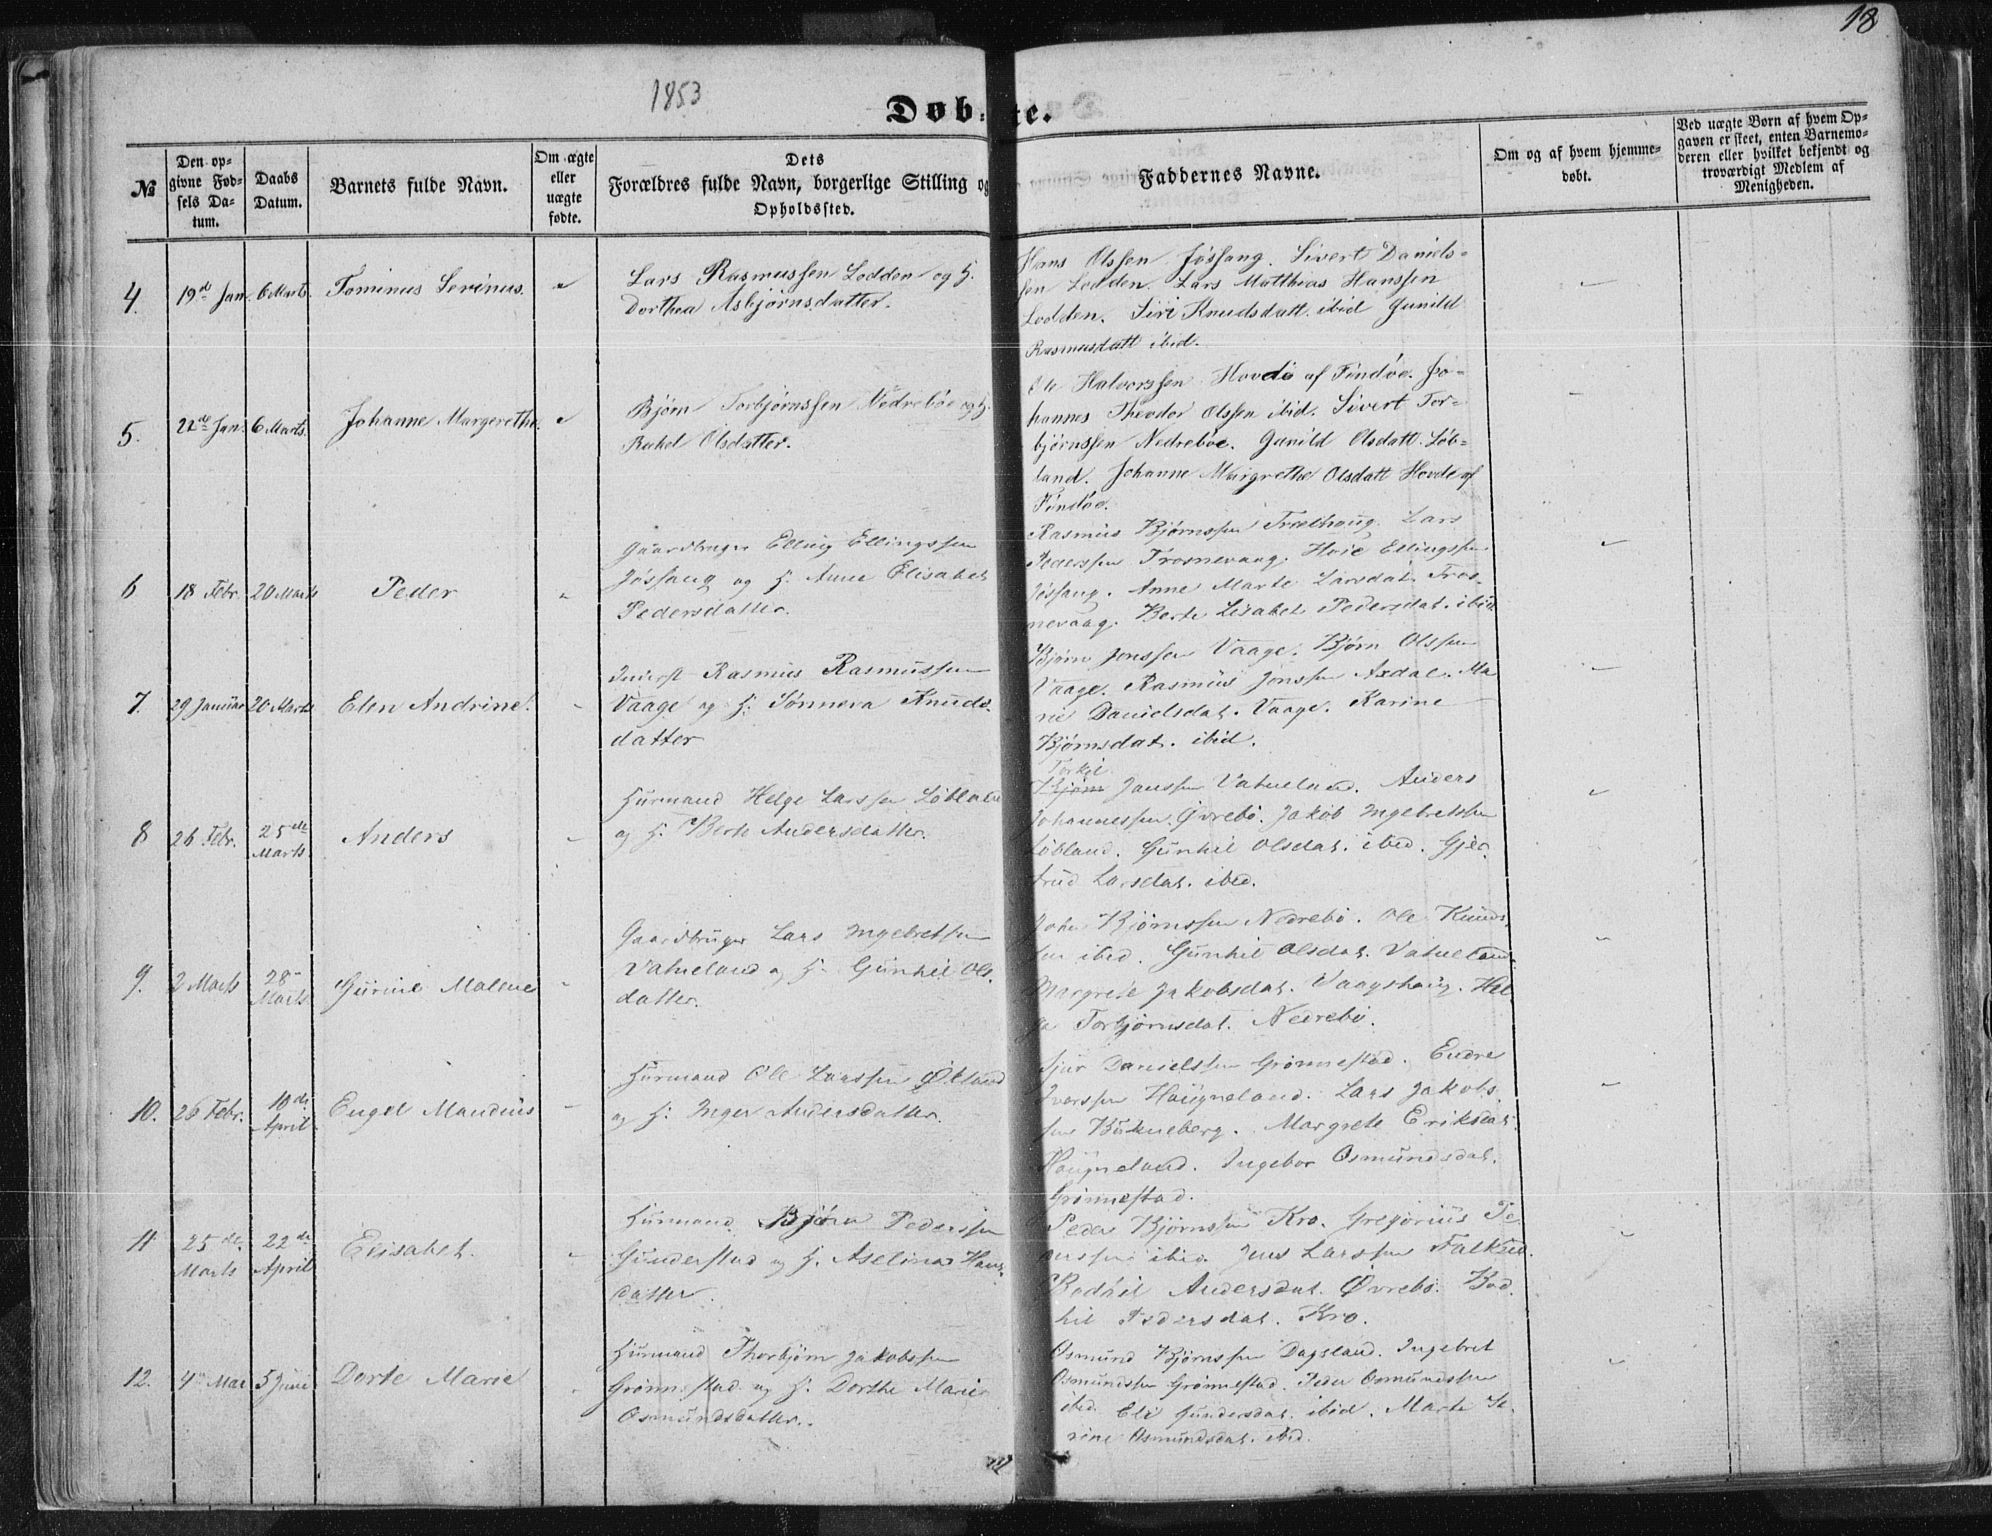 18
1853
Døbte.
№
Den opgivne Fødsels Datum.
Daabs Datum.
Barnets fulde Navn.
Om ægte eller uægte fødte.
Dets Forældres fulde Navn, borgerlige Stilling og Opholdssted.
Faddernes Navne.
Om og af hvem hjemmedøbt.
Ved uægte Børn af hvem Opgaven er skeet, enten Barnemoderen eller hvilket bekjendt og troværdigt Medlem af Menigheden.
4. 19de Jan. 6 Marts. Tominus Serinus.
Lars Rasmussen Lodden og H.
Dorthea Asbjørnsdatter.
Hans Olssen Jøssang. Sivert Daniels-
sen Lodden. Lars Matthias Hanssen
Lodden. Siri Knudsdatt. ibid Gunild
Rasmusdatt ibid.
5. 22de Jan. 6 Marts. Johanne Margerethe
Bjørn Torbjørnssen Nedrebøe og H.
Rakel Olsdatter.
Ole Halvorssen Hovde af Findøe. Jo-
hannes Theodor Olssen ibid. Sivert Tor-
bjørnssen Nedrebøe. Gunild Olsdatt. Løb-
land. Johanne Margrethe Olsdatt Hovde af
Findøe.
6 18 Febr. 20 Marts Peder
Gaardbruger Elling Ellingssen
Jøssang og H. Anne Elisabet
Pedersdatter.
Rasmus Bjørnssen Trælhoug. Lars
Pederssen Trosnevaag. Elling
Jøssang. Anne Marte Larsdat. Tros-
nevaag. Berte Lisabet Pedersdat. ibid
7. 29 Januar 20 Marts Elen Andrine.
Inderst Rasmus Rasmussen
Vaage og H. Sønneva Knuds-
datter
Bjørn Jonssen Vaage. Bjørn Olssen
Vaage. Rasmus Jonssen Axdal. Ma
rie Danielsdat. Vaage. Karine
Bjørnsdat. ibid.
8 26 Febr. 25de Marts. Anders
Huusmand Helge Larssen Løbland
og H. Berte Andersdatter.
Torkil
Bjørn Janssen Vatneland. Anders
Johannessen Øvrebø. Jakob Ingebretssen
Løbland. Gunhil Olsdat. ibid. Gjer
trud Larsdat. ibid.
9. 2 Marts 28 Marts Gurine Malene
Gaardbruger Lars Ingebretsen
Vatneland og H. Gunhil Ols-
datter.
Bjørnssen Nedrebø. Ole Knuds
sen ibid. Gunhil Olsdat. Vatneland.
Margrete Jakobsdat. Vaagshaug. Hel
ga Torbjørnsdat. Nedrebø.
10. 26 Febr. 10de April Engel Mandius
Huusmand Ole Larssen Økland
og H. Inger Andersdatter.
Sjur Danielssen Grønnestad. Endre
Iverssen Haugneland. Lars Jakobs-
sen Bokneberg. Margrete Eriksdat.
Haugneland. Ingebor Osmundsdat.
Grønnestad.
11 25de Marts 22de April Elisabet.
Huusmand Bjørn Pederssen
Gunderstad og H. Aselina Hans-
datter.
Peder Bjørnssen Kro. Gregorius Pe
derssen ibid. Jens Larssen
Bodhil Andersdat. Øvrebø. Bod
hil Pedersdat. Kro.
12. 4 Mai 5 Juni Dorte Marie
Huusmand Thorbjørn Jakobssen
Grønnestad og H. Dorthe Marie
Osmundsdatter.
Osmund Bjørnssen Dagsland. Ingebret
Osmundssen Grønnestad. Peder Osmundssen
ibid. Eli Gundersdat. ibid. Marte Se-
rine Osmundsdat. ibid